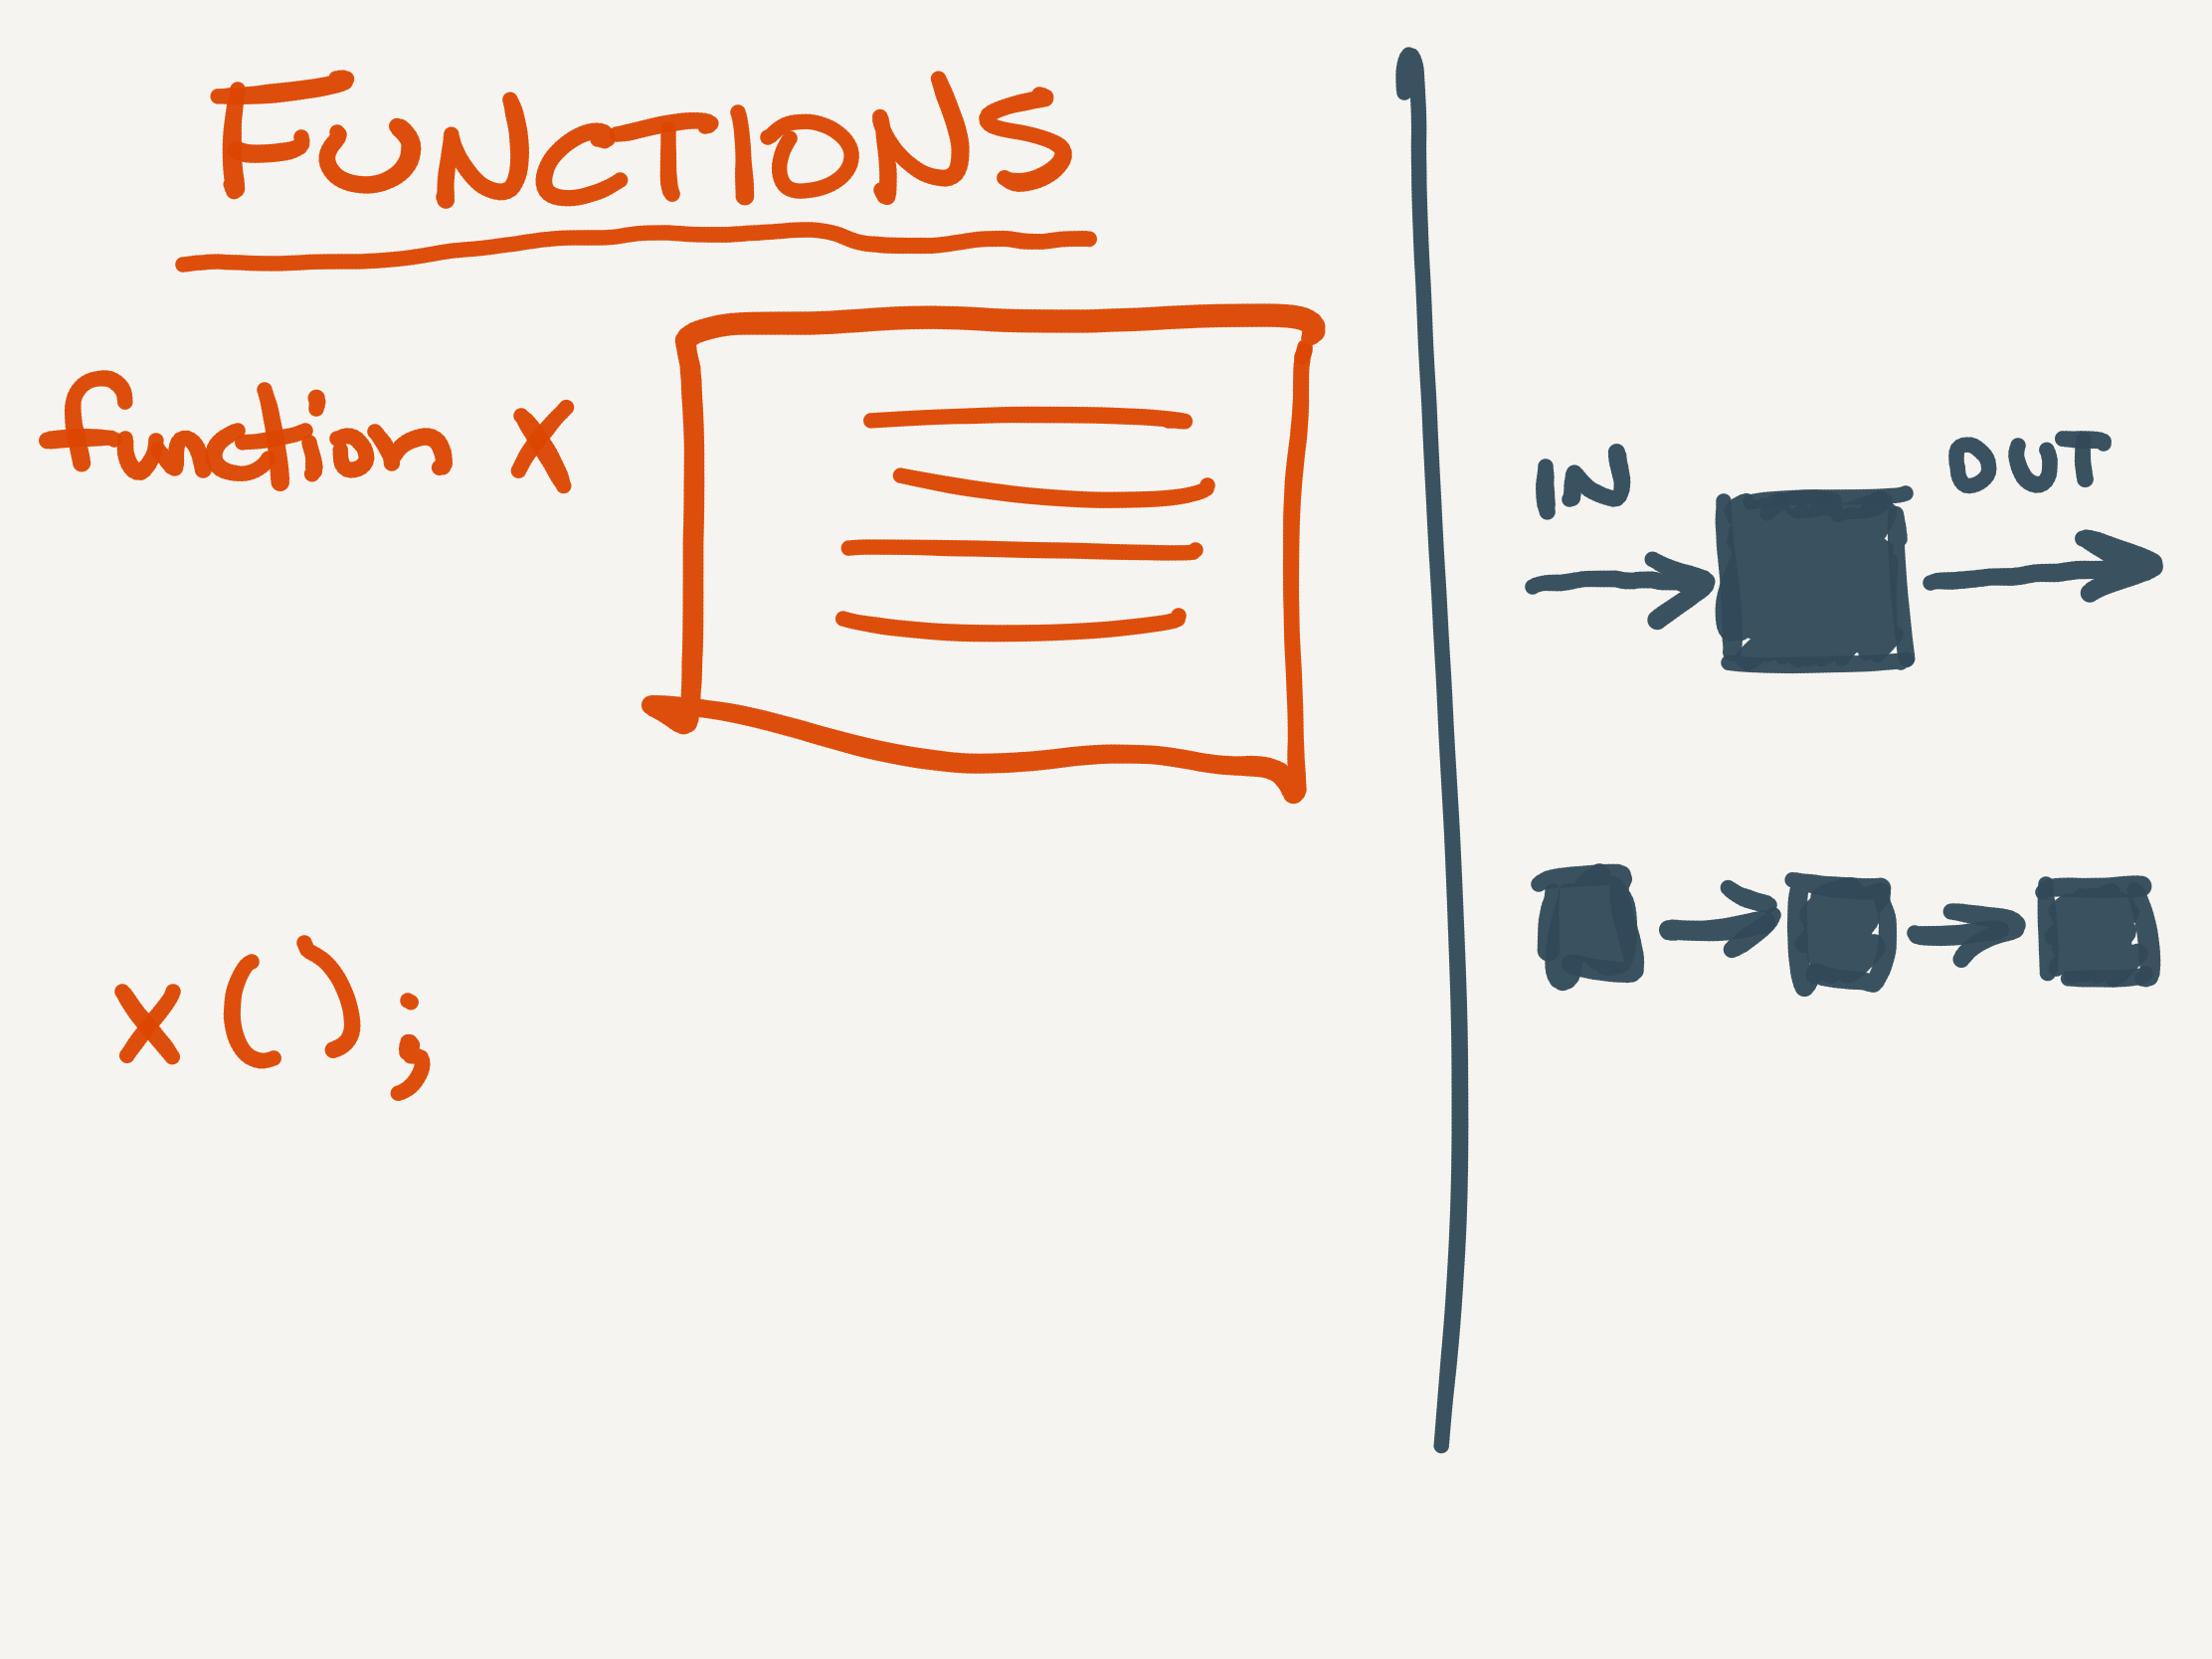 FUNCTIONS
function x
x();
IN
OUT